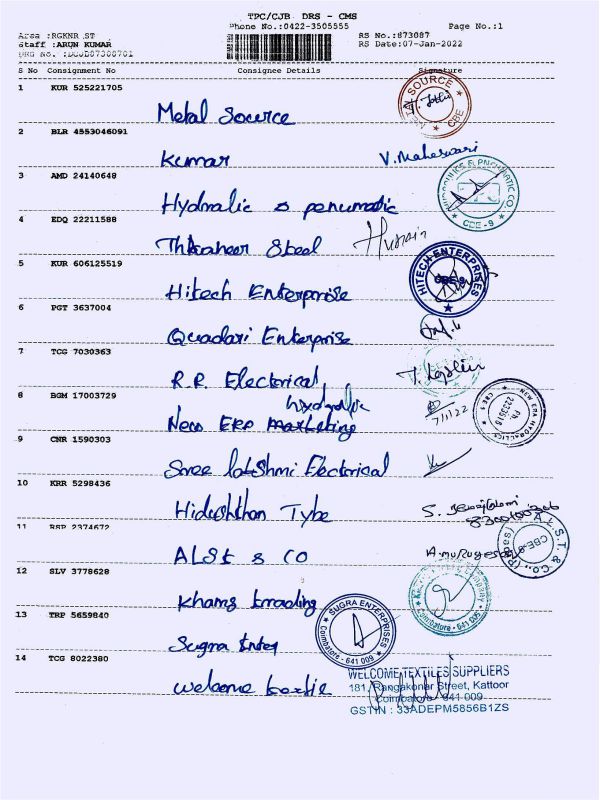 TPC/CJB DRS - CMS
Phone No.:0422-3505555 Page No.:1
Area :RGKNR ST RS No.:873087
Staff :ARUN KUMAR RS Date:07-Jan-2022
S No Consignment No Consignee Details Signature
METAL SOURCE CBE
1 KUR 525221705
Metal Source
2 BLR 4553046091
Kumar V. Maheswari
3 AMD 24140648
PNEUMATIC CO. CBE - 9
Hydralic & penumatic
4 EDQ 22211588
Steel Hussain
5 KUR 606125519
HITECH ENTERPRISES CBE-9
Hitech Enterprise
6 PGT 3637004
Quadari Enterprise
7 TCG 7030363
R.R. Electrical
8 BGM 17003729
hydralic
New ERA marketing 7/1/22
NEW ERA HYDRAULICS CBE 1
9 CNR 1590303
Sree Lakshmi Electrical
10 KRR 5298436
Hidushthan Tybe
11 RSP 2374672
ALSt & CO A.murugesan
A.L.S.T. & Co., (Pipes) CBE-9
12 SLV 3778628
Khams trading
Coimbatore - 641 001
13 TRP 5659840
SUGRA ENTERPRISES Coimbatore - 641 009
Sugra Enter
14 TCG 8022380
welcome textile
WELCOME TEXTILES SUPPLIERS
181, Rangakonar Street, Kattoor
Coimbatore - 641 009
GSTIN : 33ADEPM5856B1ZS